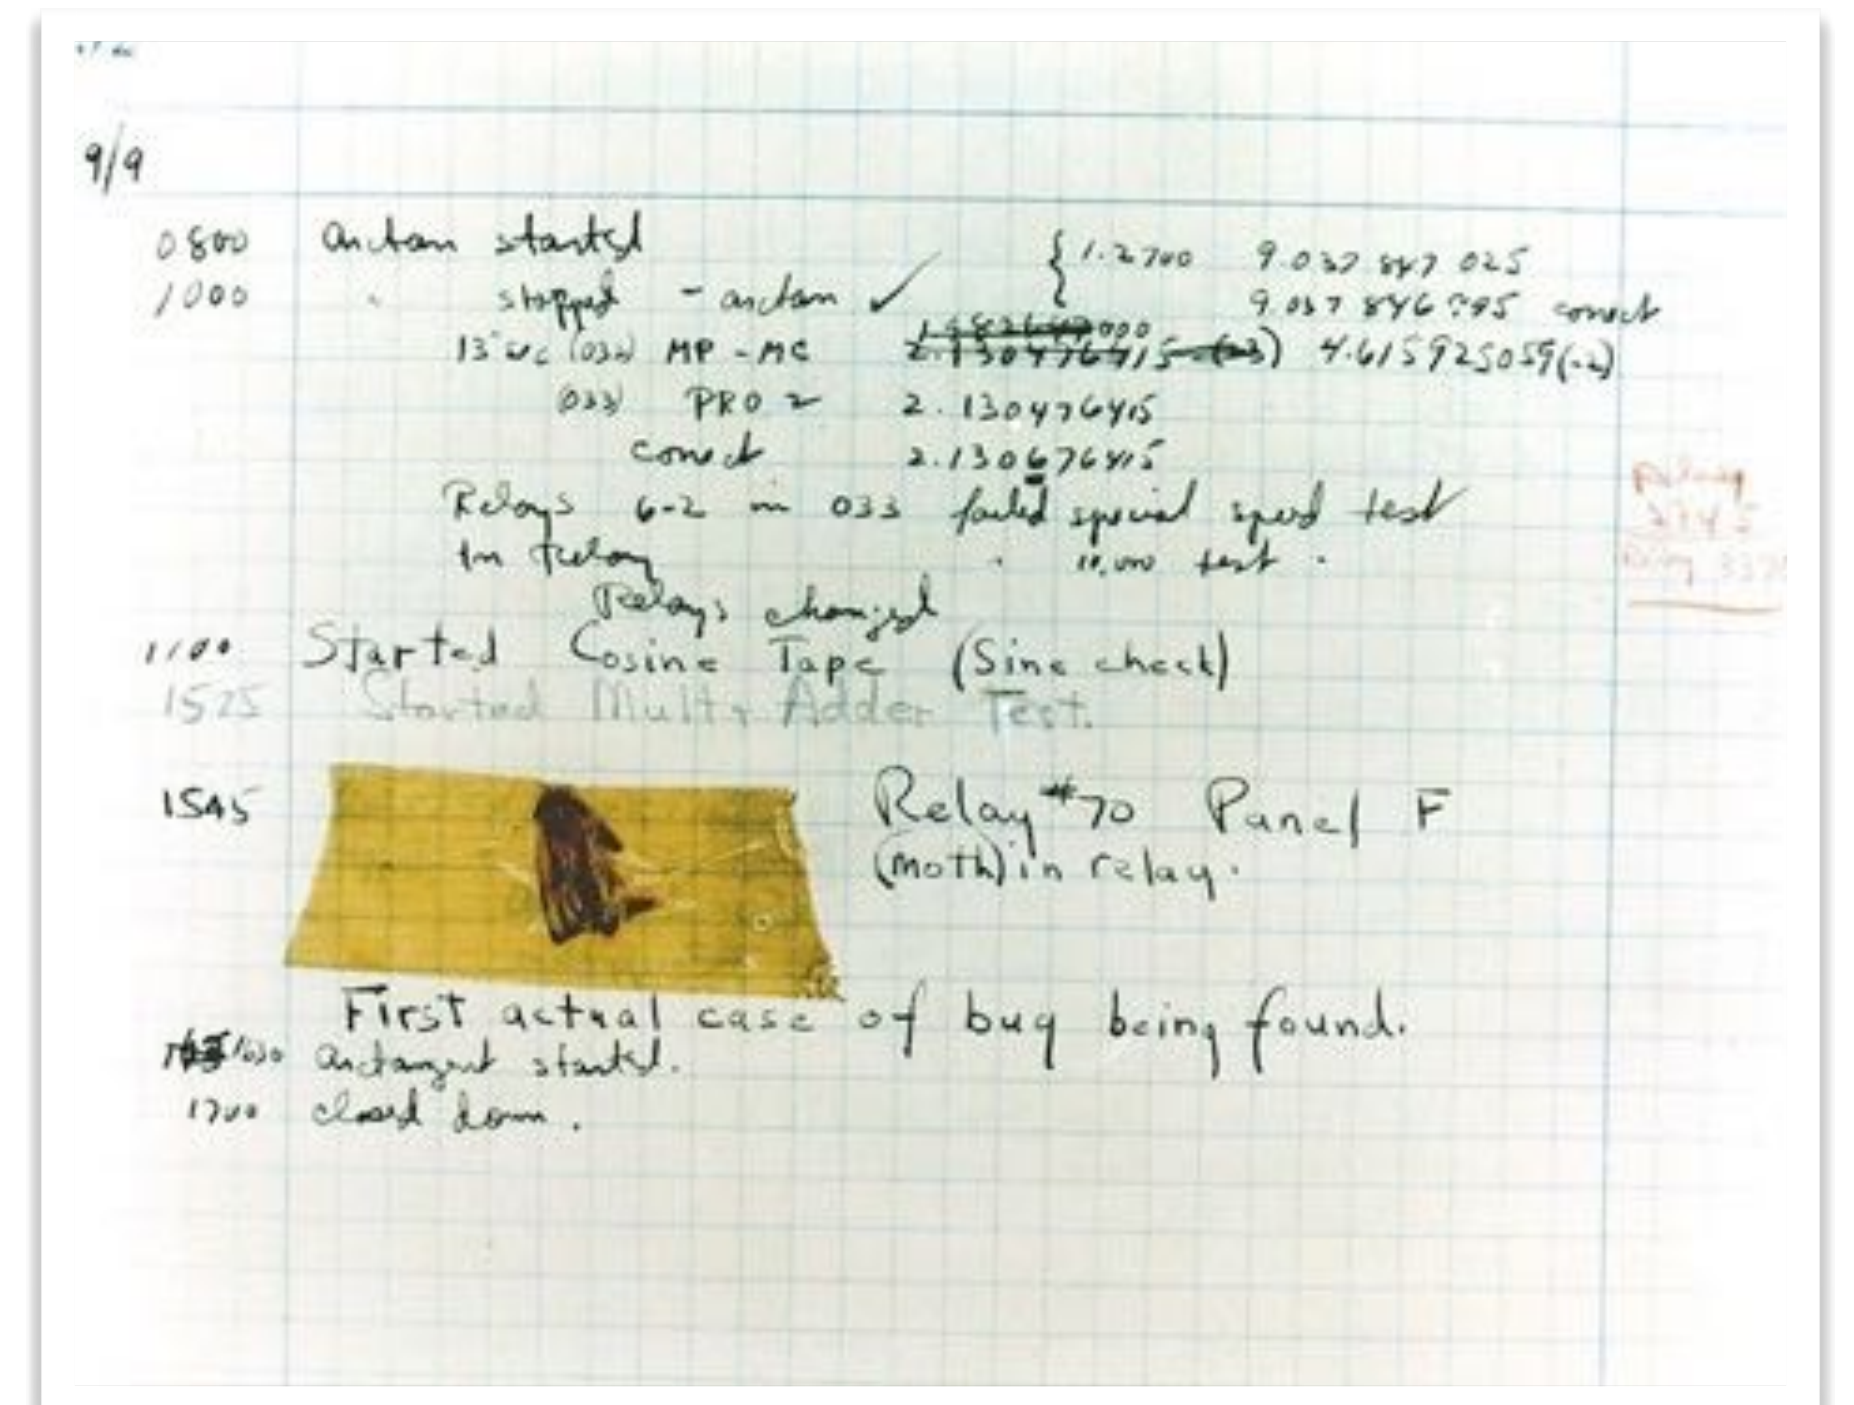 9/9
0800 antan started
1000 " stopped - antan ✓ { 1.2700 9.037 847 025
9.037 846 995 conect
13" uc (032) MP - MC 4.615925059(-2)
(033) PRO 2 2.130476415
conect 2.130676415
Relays 6-2 in 033 failed special speed test
In Relay " 10,000 test .
Relays changed
1100 Started Cosine Tape (Sine check)
1525 Started Mult + Adder Test.
1545 Relay #70 Panel F
(moth) in relay.
First actual case of bug being found.
1630 antangent started.
1700 closed down.
Relay
2145
Relay 337